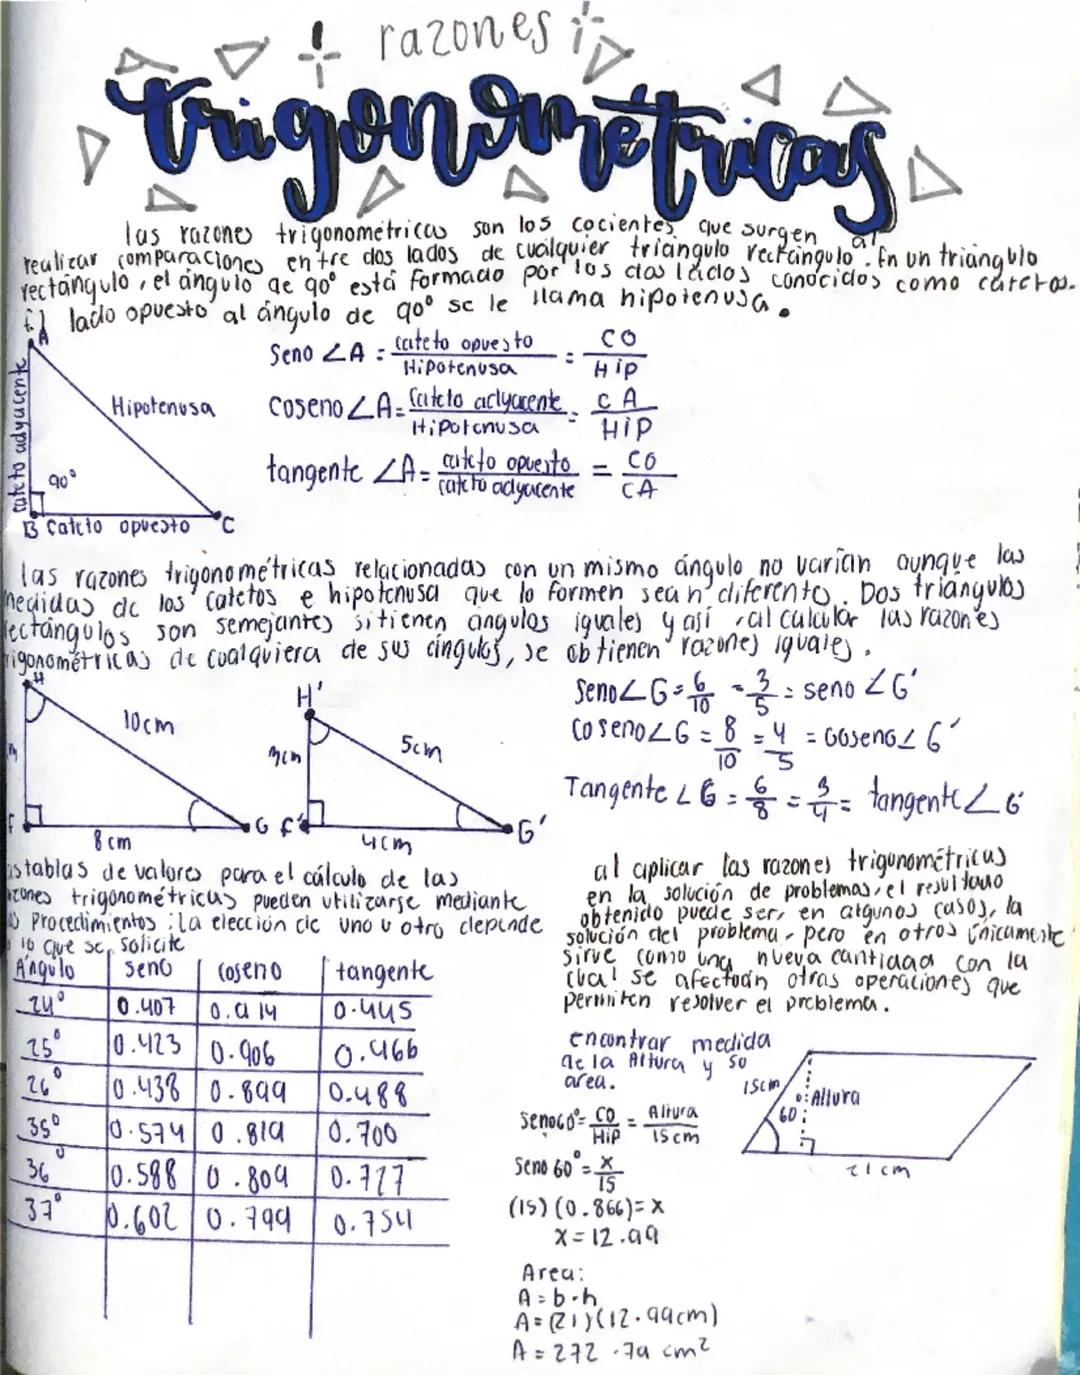 razones
trigonométricas
las razones trigonométricas son los cocientes que surgen al
realizar comparaciones entre dos lados de cualquier triángulo rectángulo. En un triángulo
rectángulo, el ángulo de 90° está formado por los dos lados conocidos como catetos.
El lado opuesto al ángulo de 90° se le llama hipotenusa.
A
cateto adyacente
Hipotenusa
90°
B Cateto opuesto C
Seno ∠A = cateto opuesto / Hipotenusa = CO / Hip
Coseno ∠A = Cateto adyacente / Hipotenusa = CA / HiP
tangente ∠A = cateto opuesto / cateto adyacente = CO / CA
las razones trigonométricas relacionadas con un mismo ángulo no varían aunque las
medidas de los catetos e hipotenusa que lo formen sean diferente. Dos triángulos
rectángulos son semejantes si tienen ángulos iguales y así, al calcular las razones
trigonométricas de cualquiera de sus ángulos, se obtienen razones iguales.
H
10cm
8cm
F
G
H'
3cm
5cm
F'
4cm
G'
Seno∠G = 6/10 = 3/5 = seno ∠G'
Coseno∠G = 8/10 = 4/5 = Coseno∠G'
Tangente ∠G = 6/8 = 3/4 = tangente∠G'
as tablas de valores para el cálculo de las
azones trigonométricas pueden utilizarse mediante
Procedimientos: la elección de uno u otro depende
lo que se solicite
Ángulo seno coseno tangente
24° 0.407 0.914 0.445
25° 0.423 0.906 0.466
26° 0.438 0.899 0.488
35° 0.574 0.819 0.700
36° 0.588 0.809 0.727
37° 0.602 0.799 0.754
al aplicar las razones trigonométricas
en la solución de problemas, el resultado
obtenido puede ser, en algunos casos, la
solución del problema, pero en otros únicamente
sirve como una nueva cantidad con la
cual se afectuán otras operaciones que
permiten resolver el problema.
encontrar medida
de la Altura y so
area.
15cm
Altura
60°
21cm
Seno60° = CO / HiP = Altura / 15cm
Seno 60° = x / 15
(15)(0.866)= x
x = 12.99
Area:
A = b·h
A = (21)(12.99cm)
A = 272.79 cm²